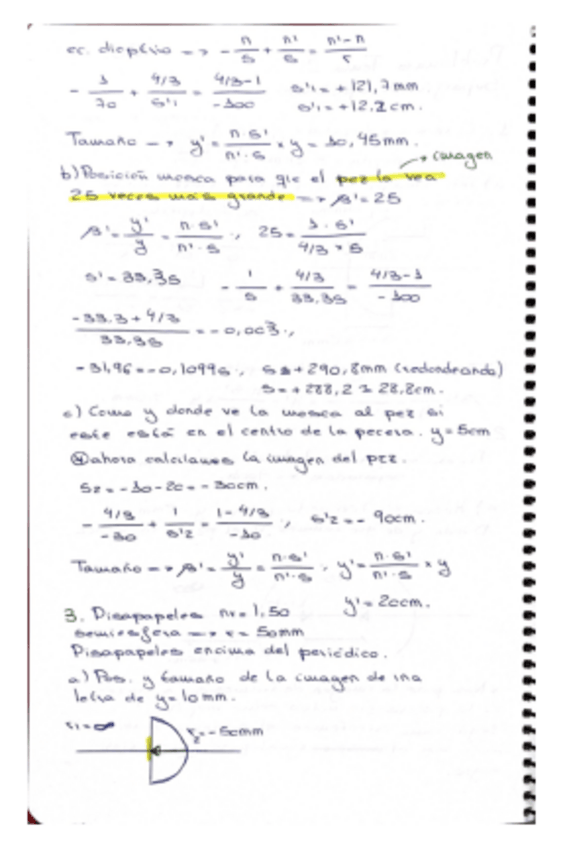 ec. dioptrio => - n/s + n'/s = n'-n/r
- 1/70 + 4/3/s'₁ = 4/3-1/-100 s'₁ = +121,7mm
s'₁ = +12.2cm.
Tamaño -> y' = n·s'/n'·s × y = 10,45mm.
-> imagen
b) Posición mosca para que el pez la vea
25 veces más grande => β' = 25
β' = y'/y = n·s'/n'·s ; 25 = 1·s'/4/3·s
s' = 33,3s - 1/s + 4/3/33,3s = 4/3-1/-100
-33,3+4/3/33,3s = -0,003 ;
-31,96 = -0,1099s ; s = +290,8mm (redondeando)
s = +288,2 ≈ 28,8cm.
c) Como y donde ve la mosca al pez si
este está en el centro de la pecera. y = 5cm
ahora calculamos la imagen del pez.
s₂ = -10-20 = -30cm.
- 4/3/-30 + 1/s'₂ = 1-4/3/-10 ; s'₂ = -90cm.
Tamaño => β' = y'/y = n·s'/n'·s ; y' = n·s'/n'·s × y
y' = 20cm.
3. Pisapapeles n = 1,50
semiesfera => r = 50mm
Pisapapeles encima del periódico.
a) Pos. y tamaño de la imagen de una
letra de y = 10mm.
r₁ = ∞
r₂ = -50mm